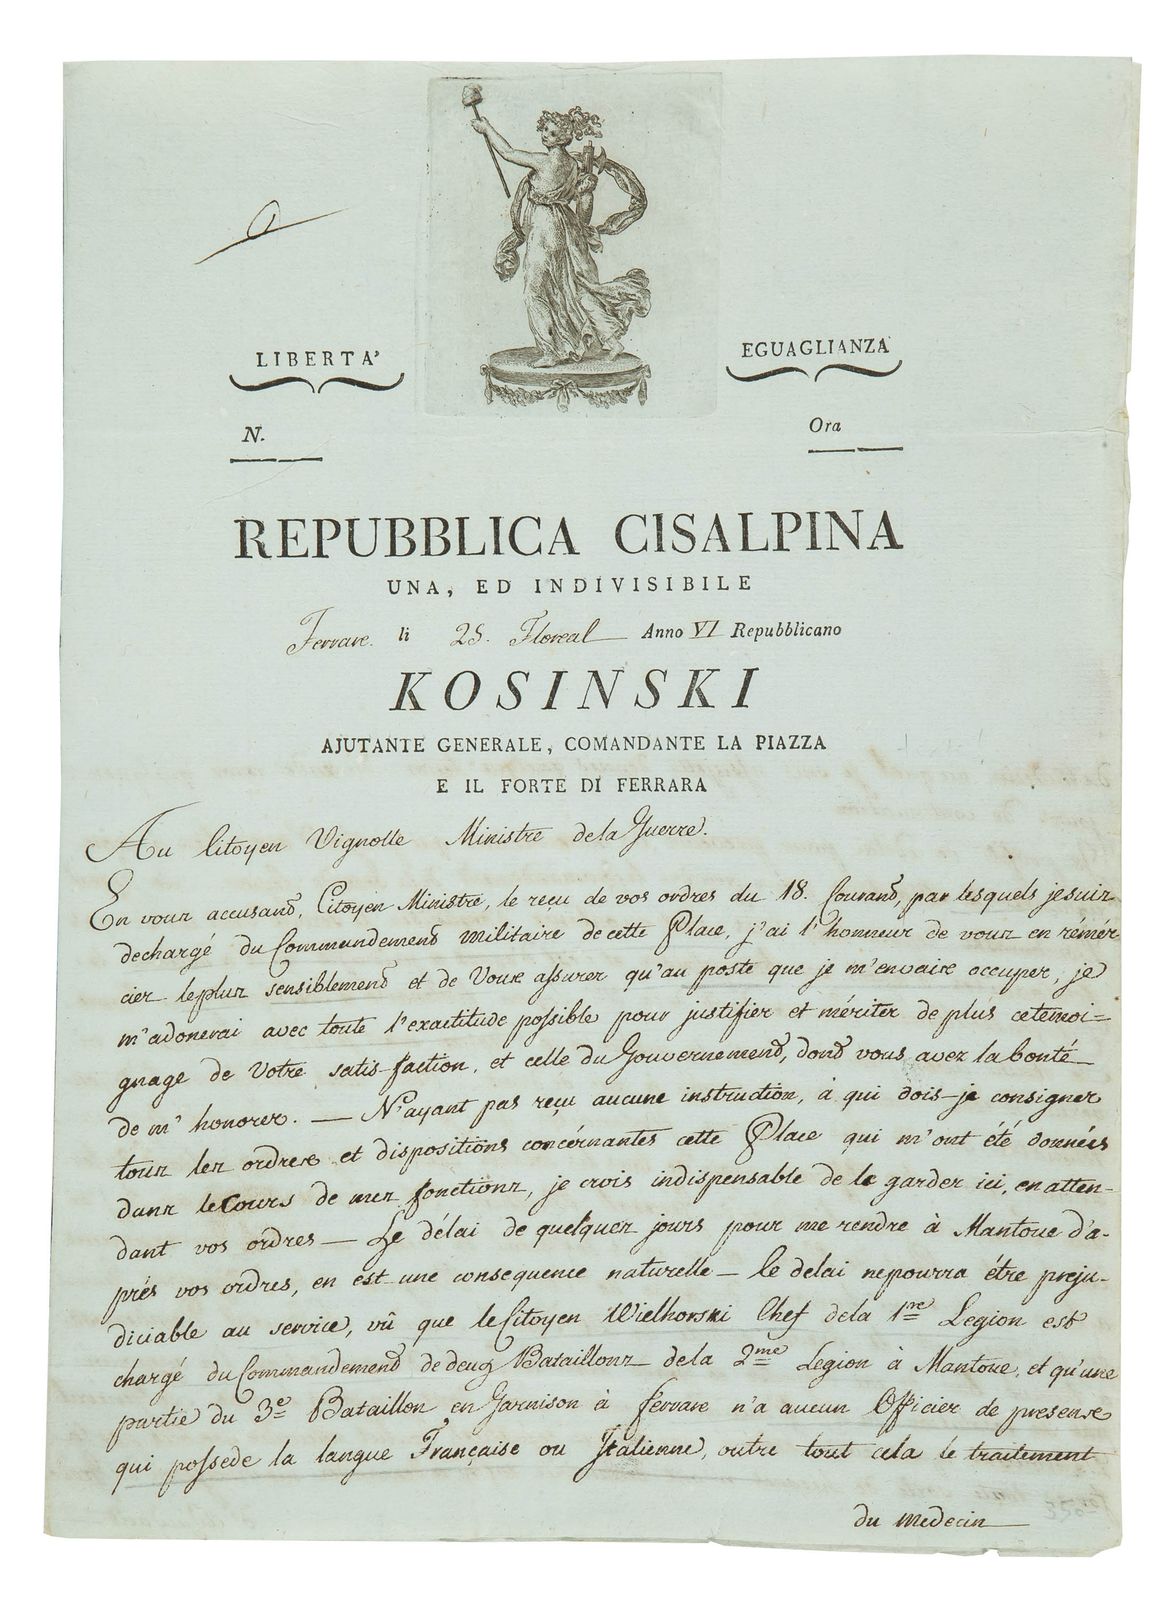 LIBERTA'
EGUAGLIANZA
N.
Ora
REPUBBLICA CISALPINA
UNA, ED INDIVISIBILE
Ferrare. li 25. Floreal Anno VI Repubblicano
KOSINSKI
AJUTANTE GENERALE, COMANDANTE LA PIAZZA
E IL FORTE DI FERRARA
Au Citoyen Vignolle Ministre de la Guerre.
En vous accusand, Citoyen Ministre, le reçu de vos ordres du 18. Courand, par lesquels je suis
dechargé du Commendemend militaire de cette Place, j'ai l'honneur de vous en rémér
cier le plus sensiblemend et de Vous assurer qu'au poste que je m'en vais occuper, je
m'adonerai avec toute l'exactitude possible pour justifier et mériter de plus ce temoi=
gnage de Votre satisfaction, et celle du Gouvernemend, dond vous avez la bonté
de m'honorer. — N'ayant pas reçu aucune instruction, à qui dois-je consigner
tous les ordres et dispositions concérnantes cette Place qui m'ont été données
dans le Cours de mes fonctions, je crois indispensable de le garder ici, en atten-
dant vos ordres — Le délai de quelques jours pour me rendre à Mantoue d'a-
près vos ordres, en est une consequence naturelle — le delai ne pourra étre preju-
diciable au service, vû que le Citoyen Wielhorski Chef de la 1re Legion est
chargé du Commandemend de deux Bataillons de la 2me Legion à Mantoue, et qu'une
partie du 3e Bataillon en Garnison à ferrare n'a aucun Officier de presense
qui possede la langue Française ou Italienne, outre tout cela le traitement
du medecin
350